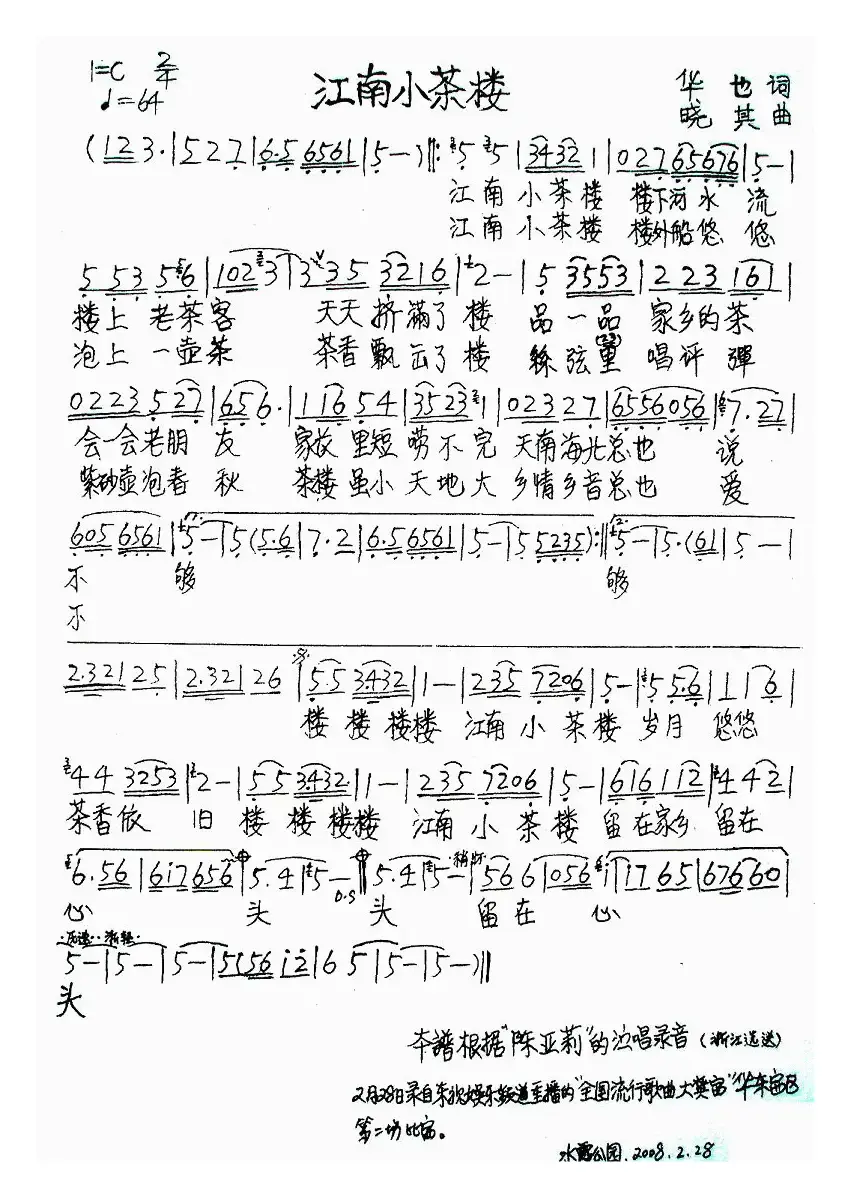 1=C 2/4
♩=64
江南小茶楼
华也词
晓其曲
(123·|527|6·5 6561|5-)‖:5 5|3432 1|027 65676|5-|
江南 小茶楼 楼下河水 流
江南 小茶楼 楼外船悠 悠
553 56|1023|3335 3216|2-|5 3553|223 16|
楼上 老茶客 天天 挤满了 楼 品一品 家乡的茶
泡上 一壶茶 茶香 飘出了 楼 丝弦 唱评弹
0223 527|656·|116 54|3523 1|023 27|6556056|7·27|
会一会老朋 友 家 里短 唠不完 天南海北总也 说
紫砂壶泡春 秋 茶楼虽小 天地大 乡情乡音总也 爱
605 6561|5-|5(5·6|7·2|6·5 6561|5-|5 5235):‖5-|5·(61|5-|
不 够 够
不
2·321 25|2·321 26|5·5 3·432|1-|235 7206|5-|5 5·6|11 6|
楼 楼 楼楼 江南 小 茶楼 岁月 悠悠
44 3253|2-|55 3·432|1-|235 7206|5-|616 112|442|
茶香依 旧 楼 楼 楼楼 江南 小 茶楼 留在家乡 留在
6·56|617656|5·4|5-|5·4|5-|566|056|i|i765|67660|
D.S
心 头 头 留在 心
5-|5-|5-|5(556 12|6 5|5-|5-)‖
头
本谱根据"陈亚莉"的演唱录音(浙江选送)
2月28日录自东视娱乐频道直播的"全国流行歌曲大奖赛"华东赛区
第二场比赛。
水霸公园.2008.2.28